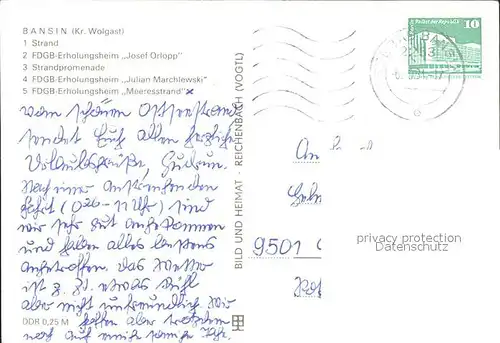 BANSIN (Kr. Wolgast)
1 Strand
2 FDGB-Erholungsheim „Josef Orlopp"
3 Strandpromenade
4 FDGB-Erholungsheim „Julian Marchlewski"
5 FDGB-Erholungsheim „Meeresstrand" x
vom schönen Ostseestrand
sendet Euch allen herzliche
Urlaubsgrüße, Gudrun.
Nach einer anstrengenden
Fahrt (0 26 - 11 Uhr) sind
wir sehr gut angekommen
und haben alles bestens
angetroffen. Das Wetter
ist z. Zt. etwas kühl
aber nicht unfreundlich. Wir
hoffen aber trotzdem
noch auf
DDR 0,25 M
BILD UND HEIMAT · REICHENBACH (VOGTL)
10
An
9501
privacy protection
Datenschutz